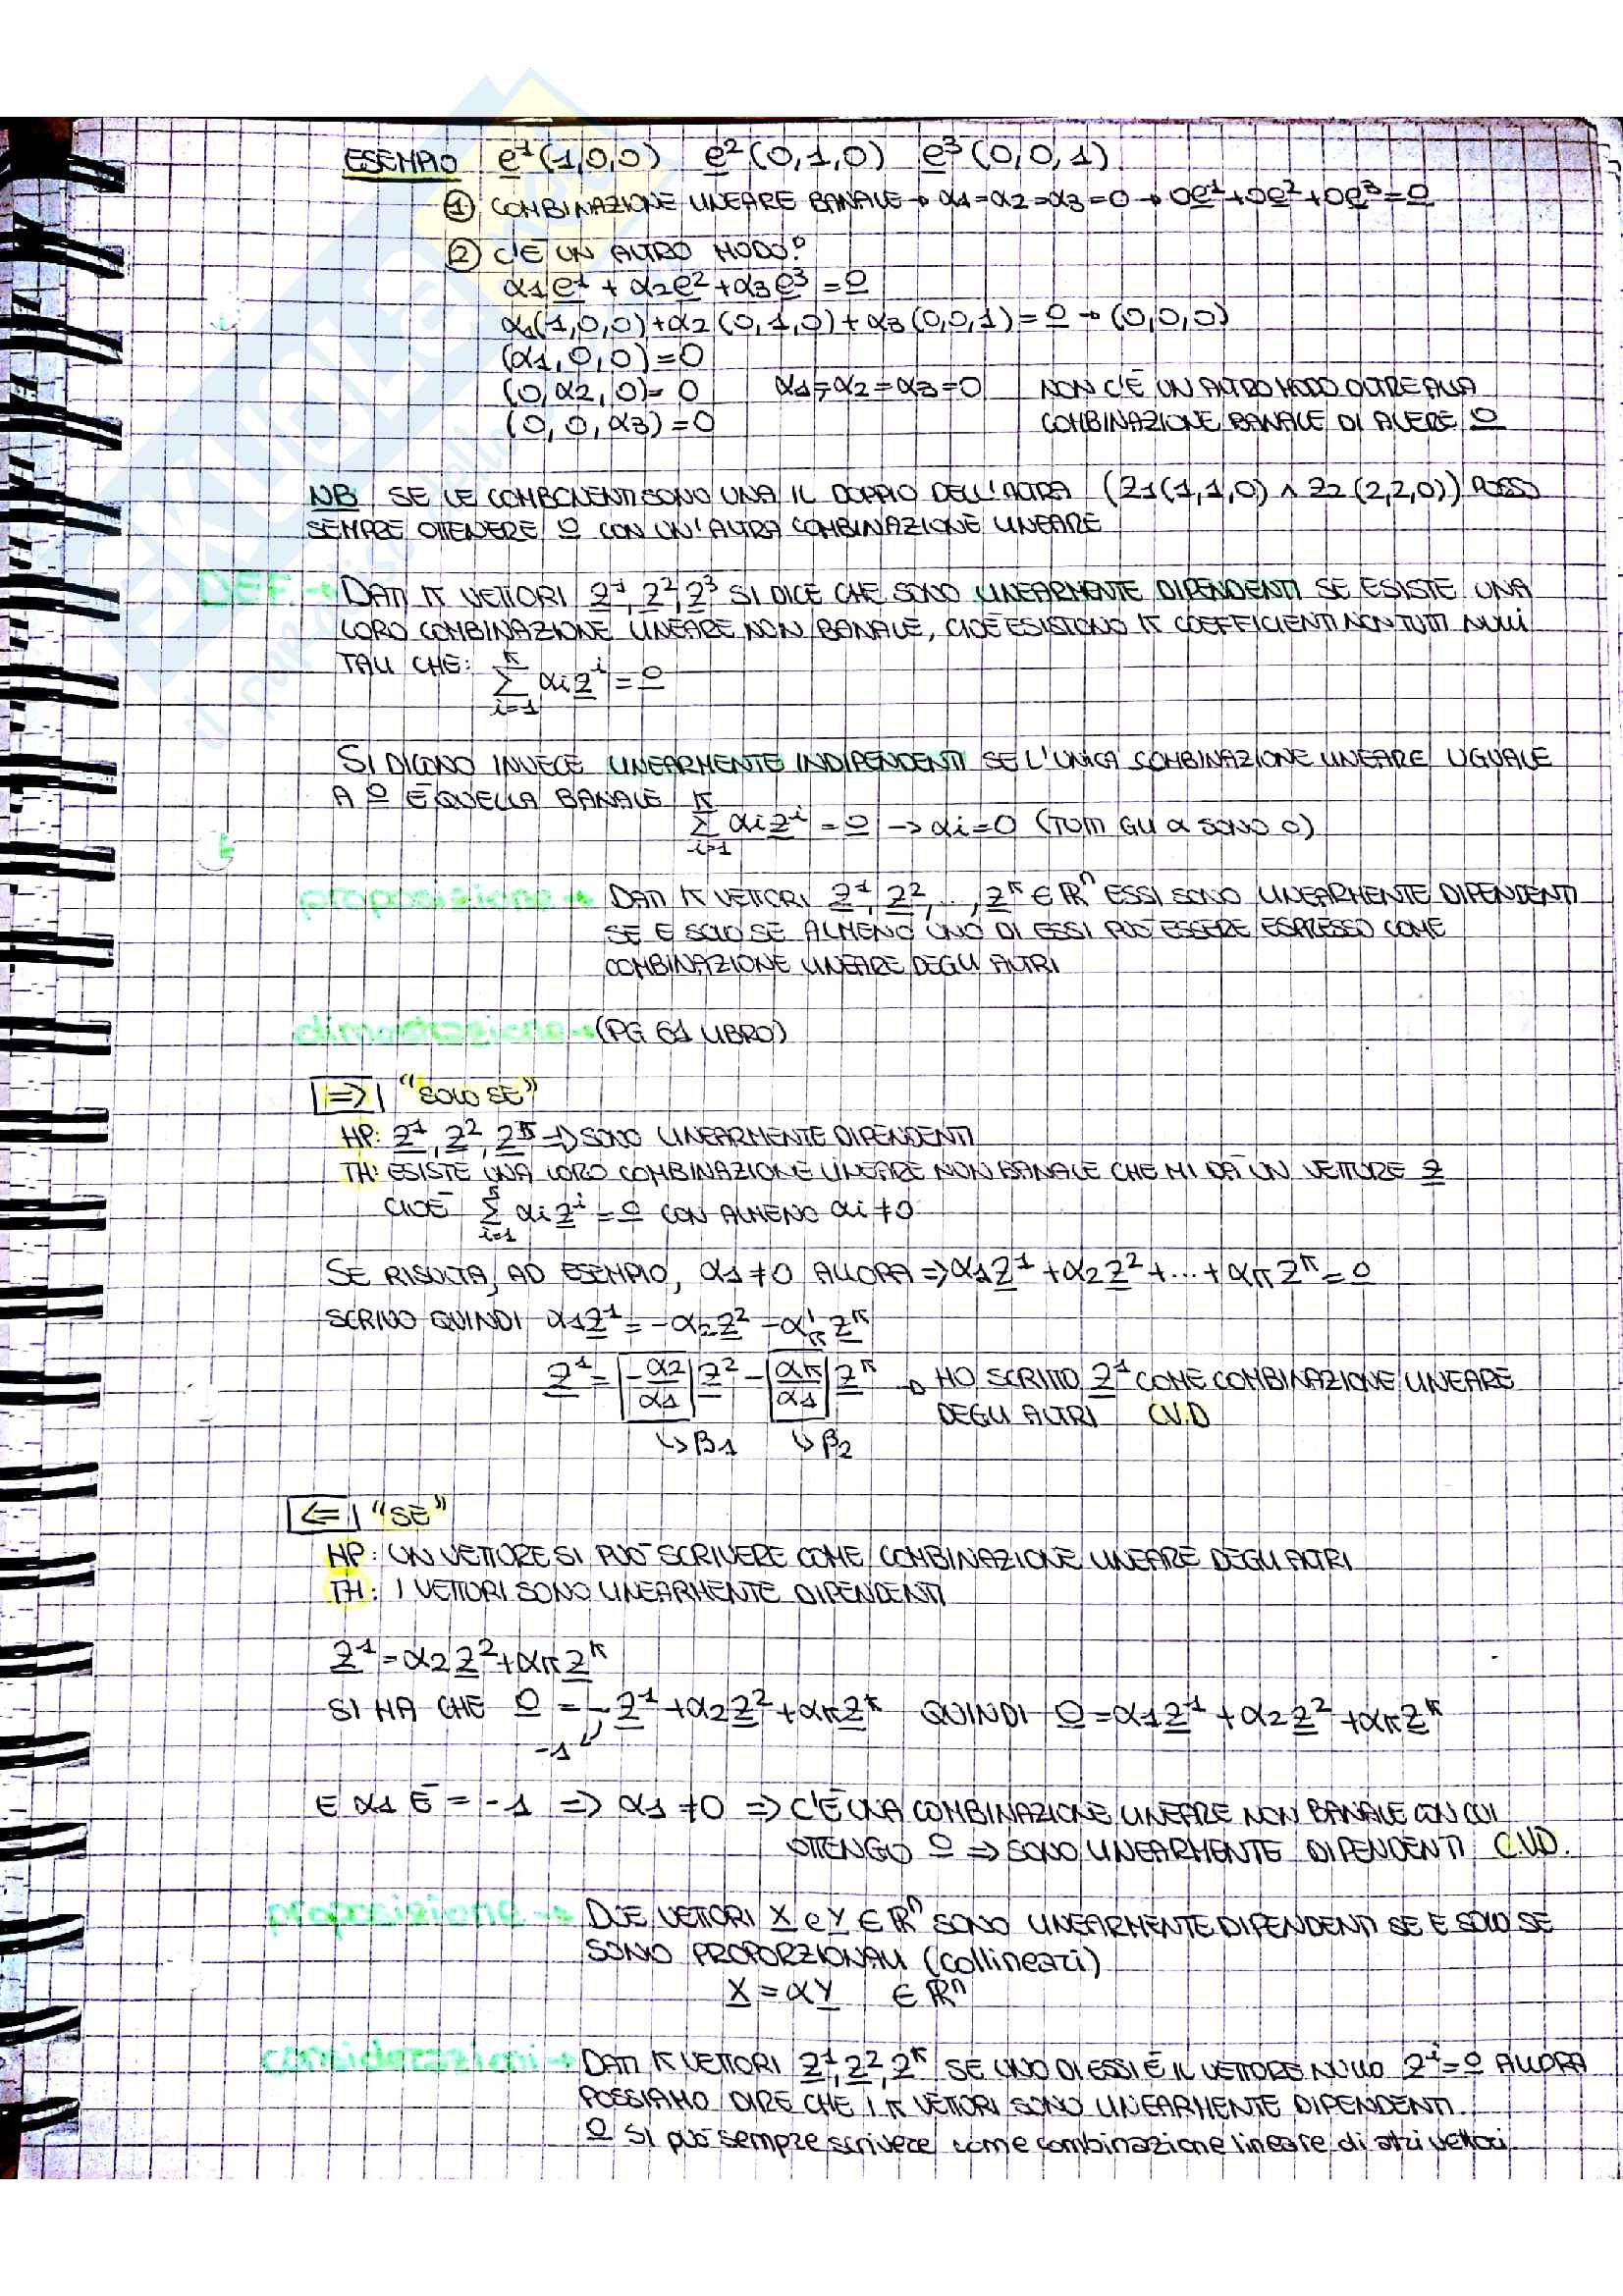 ESEMPIO e¹(1,0,0) e²(0,1,0) e³(0,0,1)
① COMBINAZIONE LINEARE BANALE → α1=α2=α3=0 → 0e¹+0e²+0e³=0
② C'È UN ALTRO MODO?
α1e¹ + α2e² + α3e³ = 0
α1(1,0,0)+α2(0,1,0)+α3(0,0,1)=0 → (0,0,0)
(α1,0,0)=0
(0,α2,0)=0 α1=α2=α3=0 NON C'È UN ALTRO MODO OLTRE ALLA
(0,0,α3)=0 COMBINAZIONE BANALE DI AVERE 0
NB SE LE COMPONENTI SONO UNA IL DOPPIO DELL'ALTRA (Z1(1,1,0) ∧ Z2(2,2,0)) POSSO
SEMPRE OTTENERE 0 CON UN'ALTRA COMBINAZIONE LINEARE
DEF. → DATI K VETTORI Z¹, Z², Z³ SI DICE CHE SONO LINEARMENTE DIPENDENTI SE ESISTE UNA
LORO COMBINAZIONE LINEARE NON BANALE, CIOÈ ESISTONO K COEFFICIENTI NON TUTTI NULLI
TALI CHE: Σ_{i=1}^{K} αi z^i = 0
SI DICONO INVECE LINEARMENTE INDIPENDENTI SE L'UNICA COMBINAZIONE LINEARE UGUALE
A 0 È QUELLA BANALE Σ_{i=1}^{K} αi z^i = 0 → αi=0 (TUTTI GLI α SONO 0)
proposizione → DATI K VETTORI Z¹, Z², ..., Z^K ∈ ℝⁿ ESSI SONO LINEARMENTE DIPENDENTI
SE E SOLO SE ALMENO UNO DI ESSI PUÒ ESSERE ESPRESSO COME
COMBINAZIONE LINEARE DEGLI ALTRI
dimostrazione → (PG 61 LIBRO)
⇒ "SOLO SE"
HP: Z¹, Z², Z^K ⇒ SONO LINEARMENTE DIPENDENTI
TH: ESISTE UNA LORO COMBINAZIONE LINEARE NON BANALE CHE MI DÀ UN VETTORE Z
CIOÈ Σ_{i=1}^{K} αi z^i = 0 CON ALMENO αi ≠ 0
SE RISULTA, AD ESEMPIO, α1 ≠ 0 ALLORA ⇒ α1Z¹ + α2Z² + ... + αKZ^K = 0
SCRIVO QUINDI α1Z¹ = -α2Z² - αKZ^K
Z¹ = -α2/α1 Z² - αK/α1 Z^K → HO SCRITTO Z¹ COME COMBINAZIONE LINEARE
DEGLI ALTRI C.V.D
↳ β1 ↳ β2
⇐ "SE"
HP: UN VETTORE SI PUÒ SCRIVERE COME COMBINAZIONE LINEARE DEGLI ALTRI
TH: I VETTORI SONO LINEARMENTE DIPENDENTI
Z¹ = α2Z² + αKZ^K
SI HA CHE 0 = -Z¹ + α2Z² + αKZ^K QUINDI 0 = α1Z¹ + α2Z² + αKZ^K
-1
E α1 È = -1 ⇒ α1 ≠ 0 ⇒ C'È UNA COMBINAZIONE LINEARE NON BANALE CON CUI
OTTENGO 0 ⇒ SONO LINEARMENTE DIPENDENTI C.V.D.
proposizione → DUE VETTORI X e Y ∈ ℝⁿ SONO LINEARMENTE DIPENDENTI SE E SOLO SE
SONO PROPORZIONALI (collineari)
X = αY ∈ ℝⁿ
considerazioni → DATI K VETTORI Z¹, Z², Z^K SE UNO DI ESSI È IL VETTORE NULLO Z^i = 0 ALLORA
POSSIAMO DIRE CHE I K VETTORI SONO LINEARMENTE DIPENDENTI.
0 SI può sempre scrivere come combinazione lineare di altri vettori